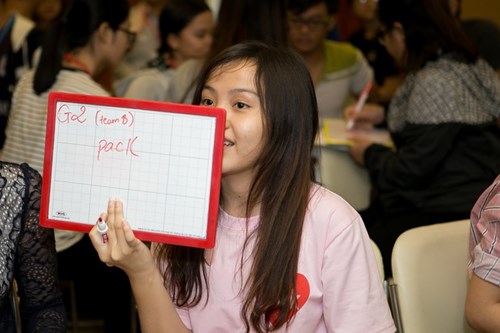 G02 (team 8)
pack